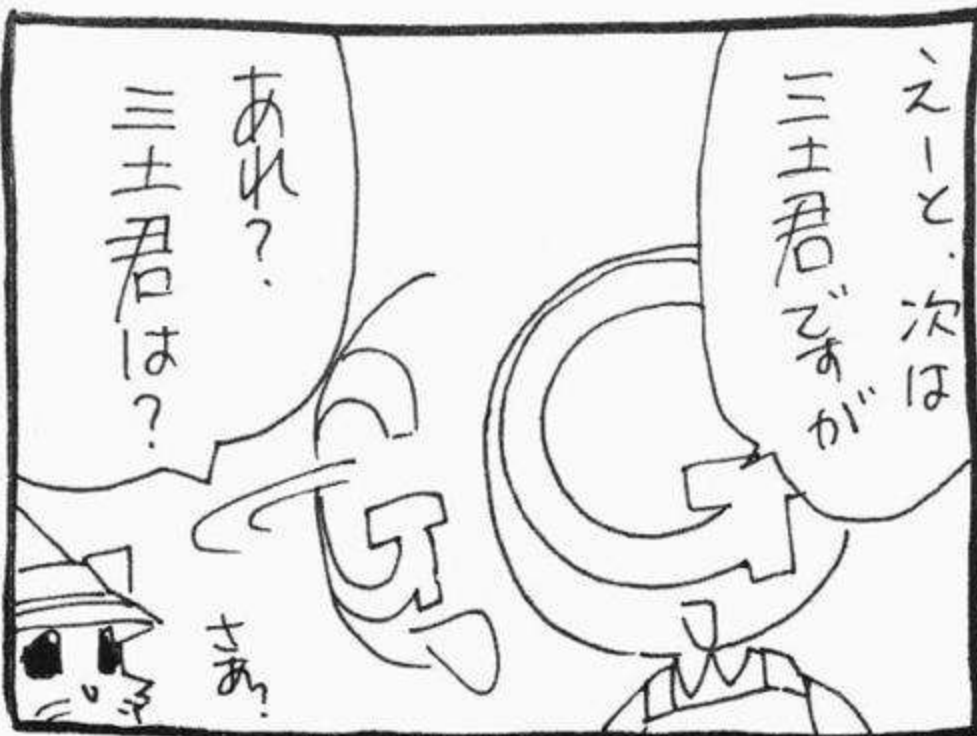 えーと、次は
三土君ですが
G
G
あれ?
三土君は?
さあ?